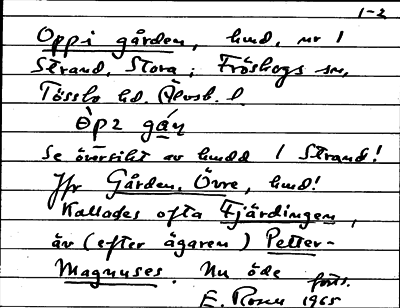 1-2
Oppi gården, hmd, nr 1
Strand, Stora; Fröskogs sn,
Tössbo hd. Älvsb. l
se översikt av hmdd / Strand!
Jfr Gården, Övre, hmd!
Kallades ofta Fjärdingen,
äv (efter ägaren) Petter-
Magnuses. Nu öde
forts.
E. Rosen 1965